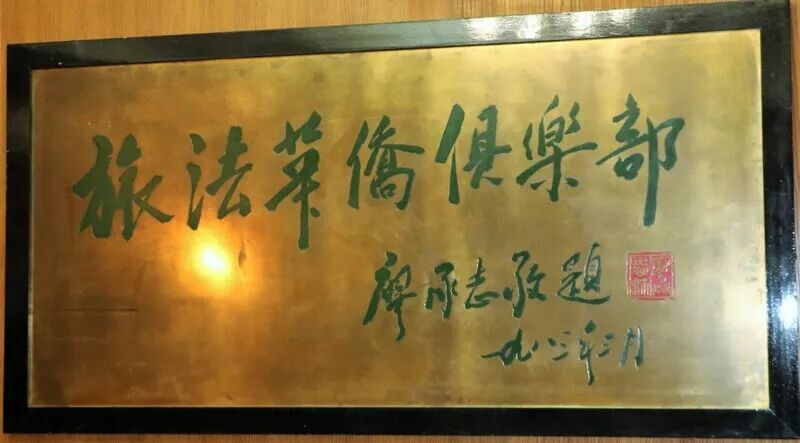 旅法華僑俱樂部
廖承志敬題
一九八三年二月